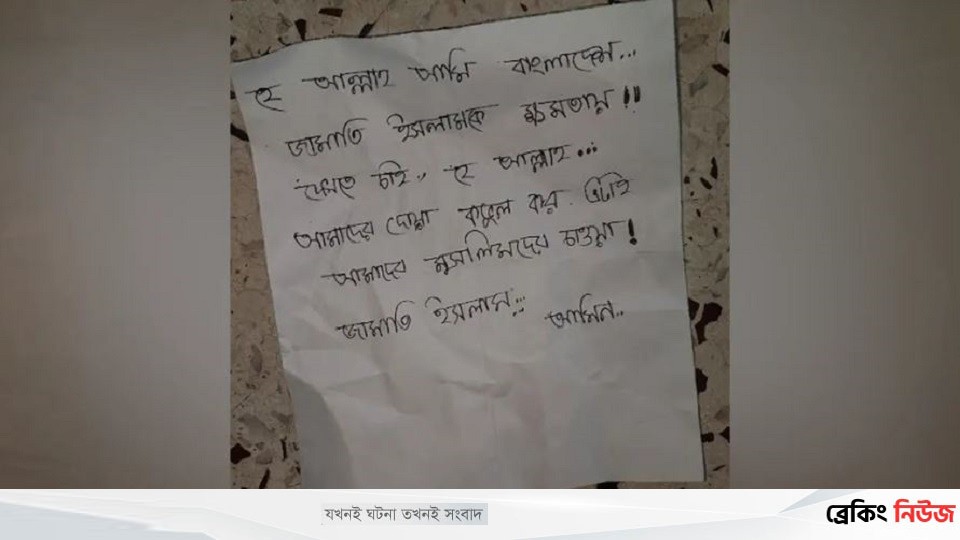 হে আল্লাহ আমি বাংলাদেশে...
জামাতি ইসলামকে ক্ষমতায় !!
দেখতে চাই.. হে আল্লাহ...
আমাদের দোয়া কবুল কর. এটাই
আমাদের মুসলিমদের চাওয়া !
জামাতি ইসলাম... আমিন..
যখনই ঘটনা তখনই সংবাদ
ব্রেকিং নিউজ